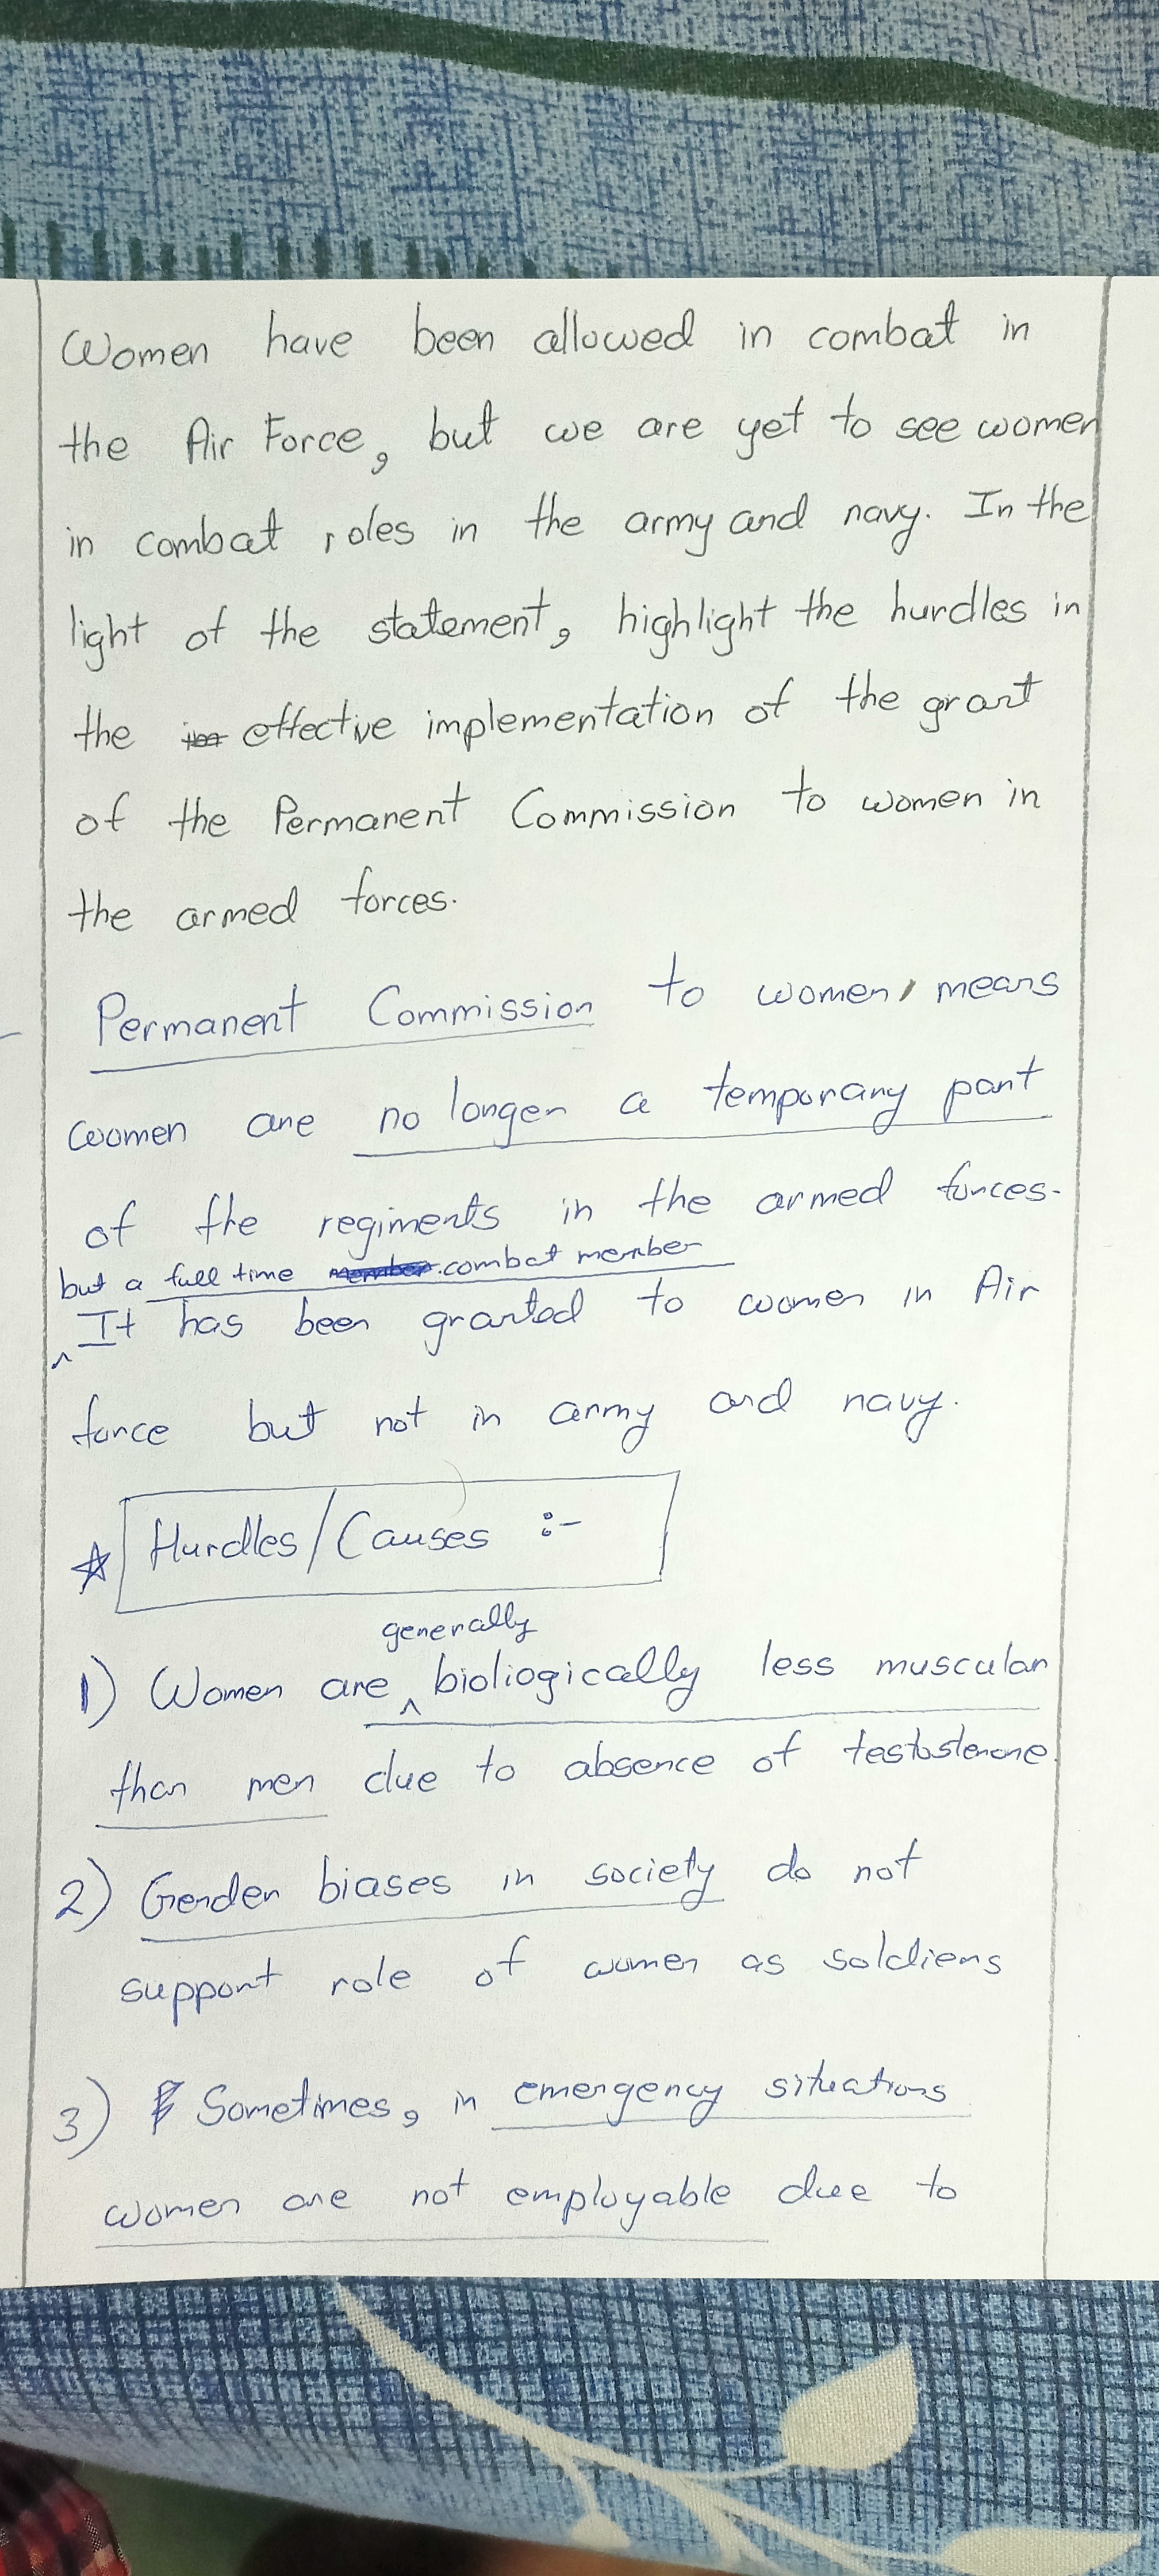 Women have been allowed in combat in
the Air Force, but we are yet to see women
in combat roles in the army and navy. In the
light of the statement, highlight the hurdles in
the effective implementation of the grant
of the Permanent Commission to women in
the armed forces.
Permanent Commission to women, means
women are no longer a temporary part
of the regiments in the armed forces.
but a full time combat member
It has been granted to women in Air
force but not in army and navy.
Hurdles/Causes :-
generally
1) Women are ^ bioliogically less muscular
than men due to absence of testosterone.
2) Gender biases in society do not
support role of women as soldiers
3) Sometimes, in emergency situations
women are not employable due to